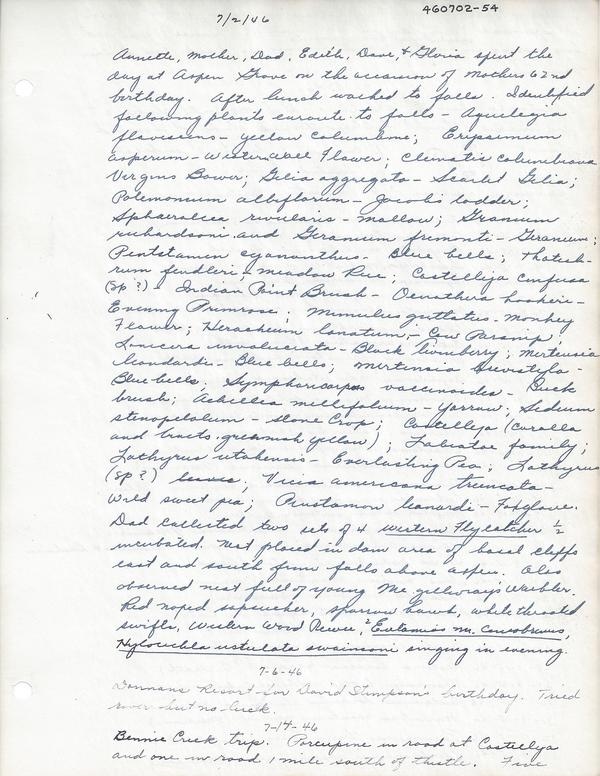 7/2/46
460702-54
Annette, Mother, Dad, Edith, Dave, & Gloria spent the
day at Aspen Grove on the occasion of Mothers 62nd
birthday. After lunch walked to falls. Identified
following plants enroute to falls - Aquilegia
flavescens - yellow columbine; Erysimum
asperum - Western Wall Flower; Clematis columbiana
Virgins Bower; Gilia aggregata - Scarlet Gilia;
Polemonium albiflorum - Jacobs ladder;
Sphaeralcea rivularis - mallow; Geranium
richardsoni and Geranium fremonti - Geranium;
Pentstamen cyananthus - Blue bells; Thalict-
rum fendleri - meadow Rue; Castelleja confusa
(sp ?) - Indian Paint Brush - Oenothera hookeri -
Evening Primrose; Mimulus guttatus - monkey
Flower; Heracleum lanatum - Cow Parsnip;
Lonicera involucrata - Black Twinberry; Mertensia
leonardi - Blue bells; mertensia brevistyla -
Blue bells; Symphoricarpos vaccinoides - Buck
brush; Achillea millifolium - Yarrow; Sedum
stenopetalum - stone Crop; Castelleja (corolla
and bracts greenish yellow); Labiatae family;
Lathyrus utahensis - Everlasting Pea; Lathyrus
(sp ?) Vicia americana truncata -
Wild sweet pea; Penstamon leonardi - Foxglove.
Dad collected two sets of 4 Western Flycatcher 1/2
incubated. Nest placed in dam area of basal cliffs
east and south from falls above aspen. Also
observed nest full of young Mc gillvray's Warbler.
Red naped sapsucker, sparrow hawk, white throated
swifts, Western Wood Pewee, 2 Eutamias m. consobrinus,
Hylocichla ustulata swainsoni singing in evening.
7-6-46
Donnans Resort for David Stimpson's birthday. Tried
river but no luck.
7-14-46
Bennie Creek trip. Porcupine in road at Castelleja
and one in road 1 mile south of thistle. Five